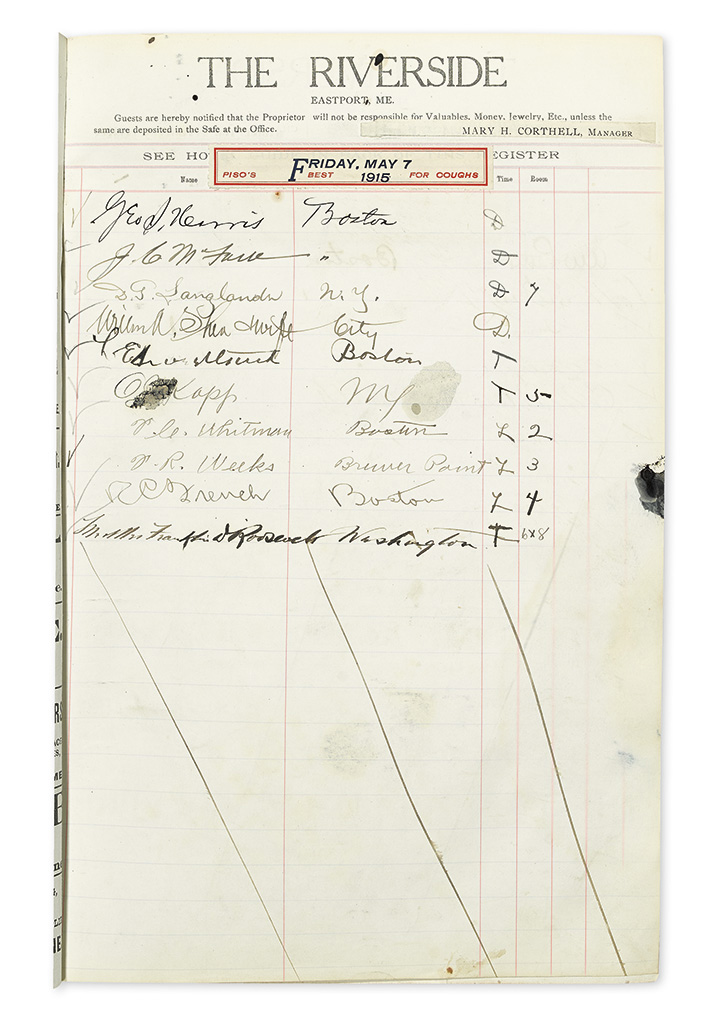 THE RIVERSIDE
EASTPORT, ME.
Guests are hereby notified that the Proprietor will not be responsible for Valuables, Money, Jewelry, Etc., unless the
same are deposited in the Safe at the Office.
MARY H. CORTHELL, MANAGER
SEE HO EGISTER
FRIDAY, MAY 7
PISO'S BEST 1915 FOR COUGHS
Name Time Room
Geo. Harris Boston D
J. C. " D
D. T. Langlands N.Y. D 7
Shea & wife City D.
Boston T
Kapp T 5
Whitman Boston L 2
R. Weeks Brewer Point L 3
French Boston L 4
Mr & Mrs Franklin D Roosevelt Washington T 6 x 8